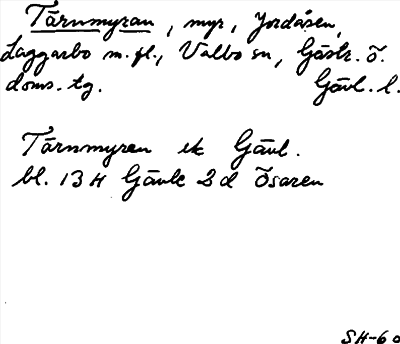 Tärnmyran, myr, Jordåsen,
Laggarbo m.fl., Valbo sn, Gästr. ö.
doms. tg. Gävl. l.
Tärnmyren ek Gävl.
bl. 13 H Gävle 3d Ösaren
SH-60